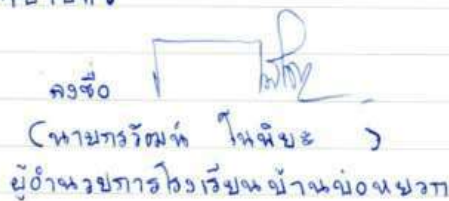 ลงชื่อ
(นายกรวัฒน์ ในนิยะ )
ผู้อำนวยการโรงเรียนบ้านบ่อหยวก